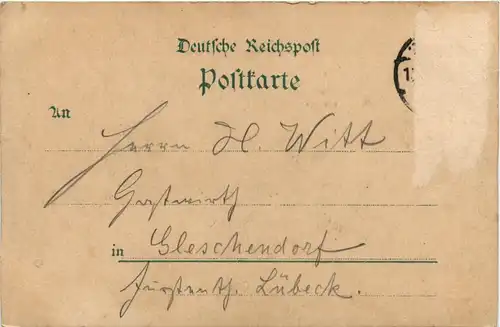 Deutsche Reichspost
Postkarte
An
Herrn H. Witt
Gastwirth
in Gleschendorf
Fürstenth. Lübeck.